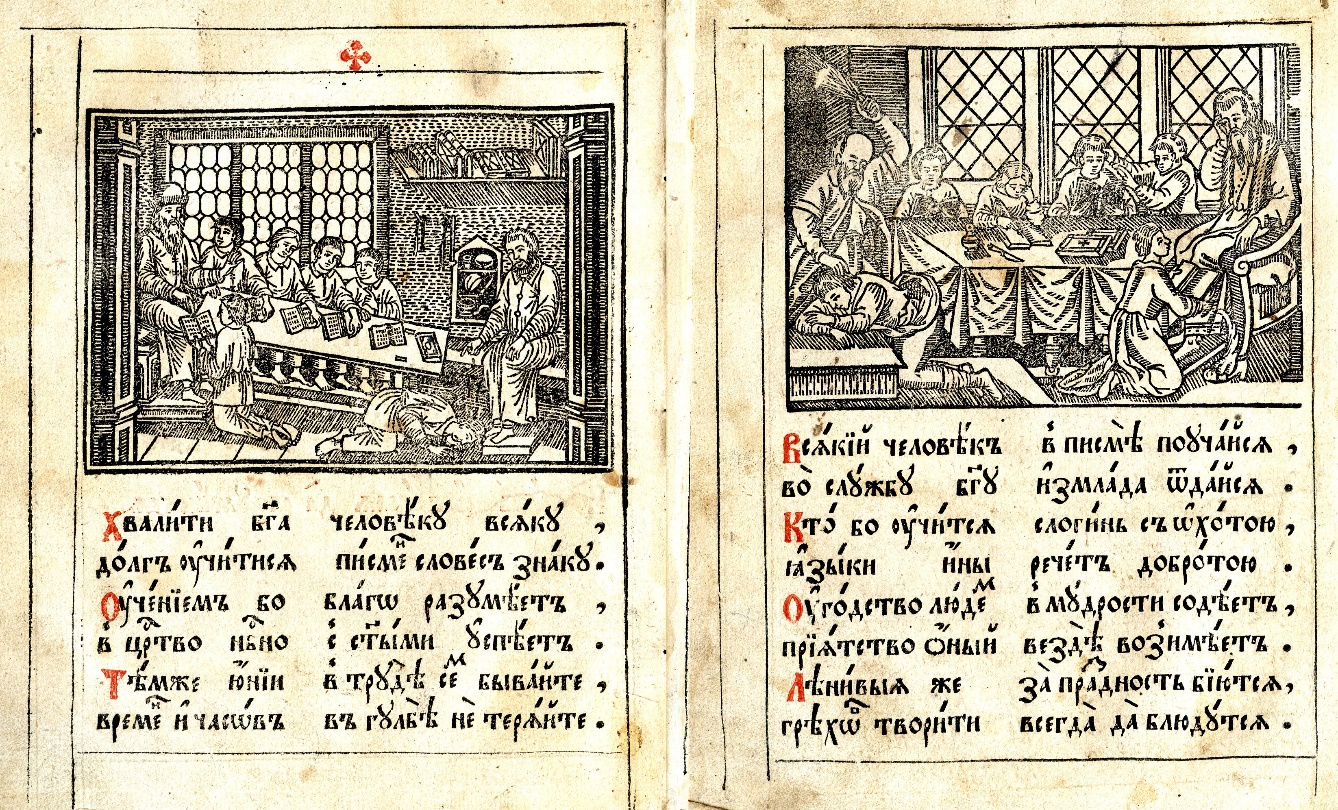 Хвали́ти бг҃а человѣ́ку всѧ́ку ,
до́лгъ ᲂу҆чи́тисѧ пи́смен словє́съ зна́ку .
Оу҆че́нїемъ бо бла́гѡ разꙋмѣ́етъ ,
в црⷭ҇тво нб҃но с ст҃ы́ми ᲂу҆спѣ́етъ .
Тѣ́мже ю҆́нїи в трꙋдѣ̀ сеⷨ быва́йте ,
времеⷩ҇ и҆ часѡ́въ въ гꙋльбѣ̀ не терѧ́йте .
Всѧ́кїй человѣ́къ в писмѣ̀ поꙋча́йсѧ ,
во слꙋ́жбꙋ бг҃ꙋ и҆змла́да ѿда́йсѧ .
Кто́ бо ᲂу҆чи́тсѧ слоги́нь съ ѡ҆хо́тою ,
ꙗ҆зы́ки и҆́ны рече́тъ добро́тою .
Оу҆го́дство лю́деⷨ в мꙋ́дрости содѣ́етъ ,
прїѧ́тство ѻ҆́ный вездѣ̀ возимѣ́етъ .
Лѣни́выѧ же за пра́здность бїю́тсѧ ,
грѣхѡ́въ твори́ти всегда̀ да блюдꙋ́тсѧ .